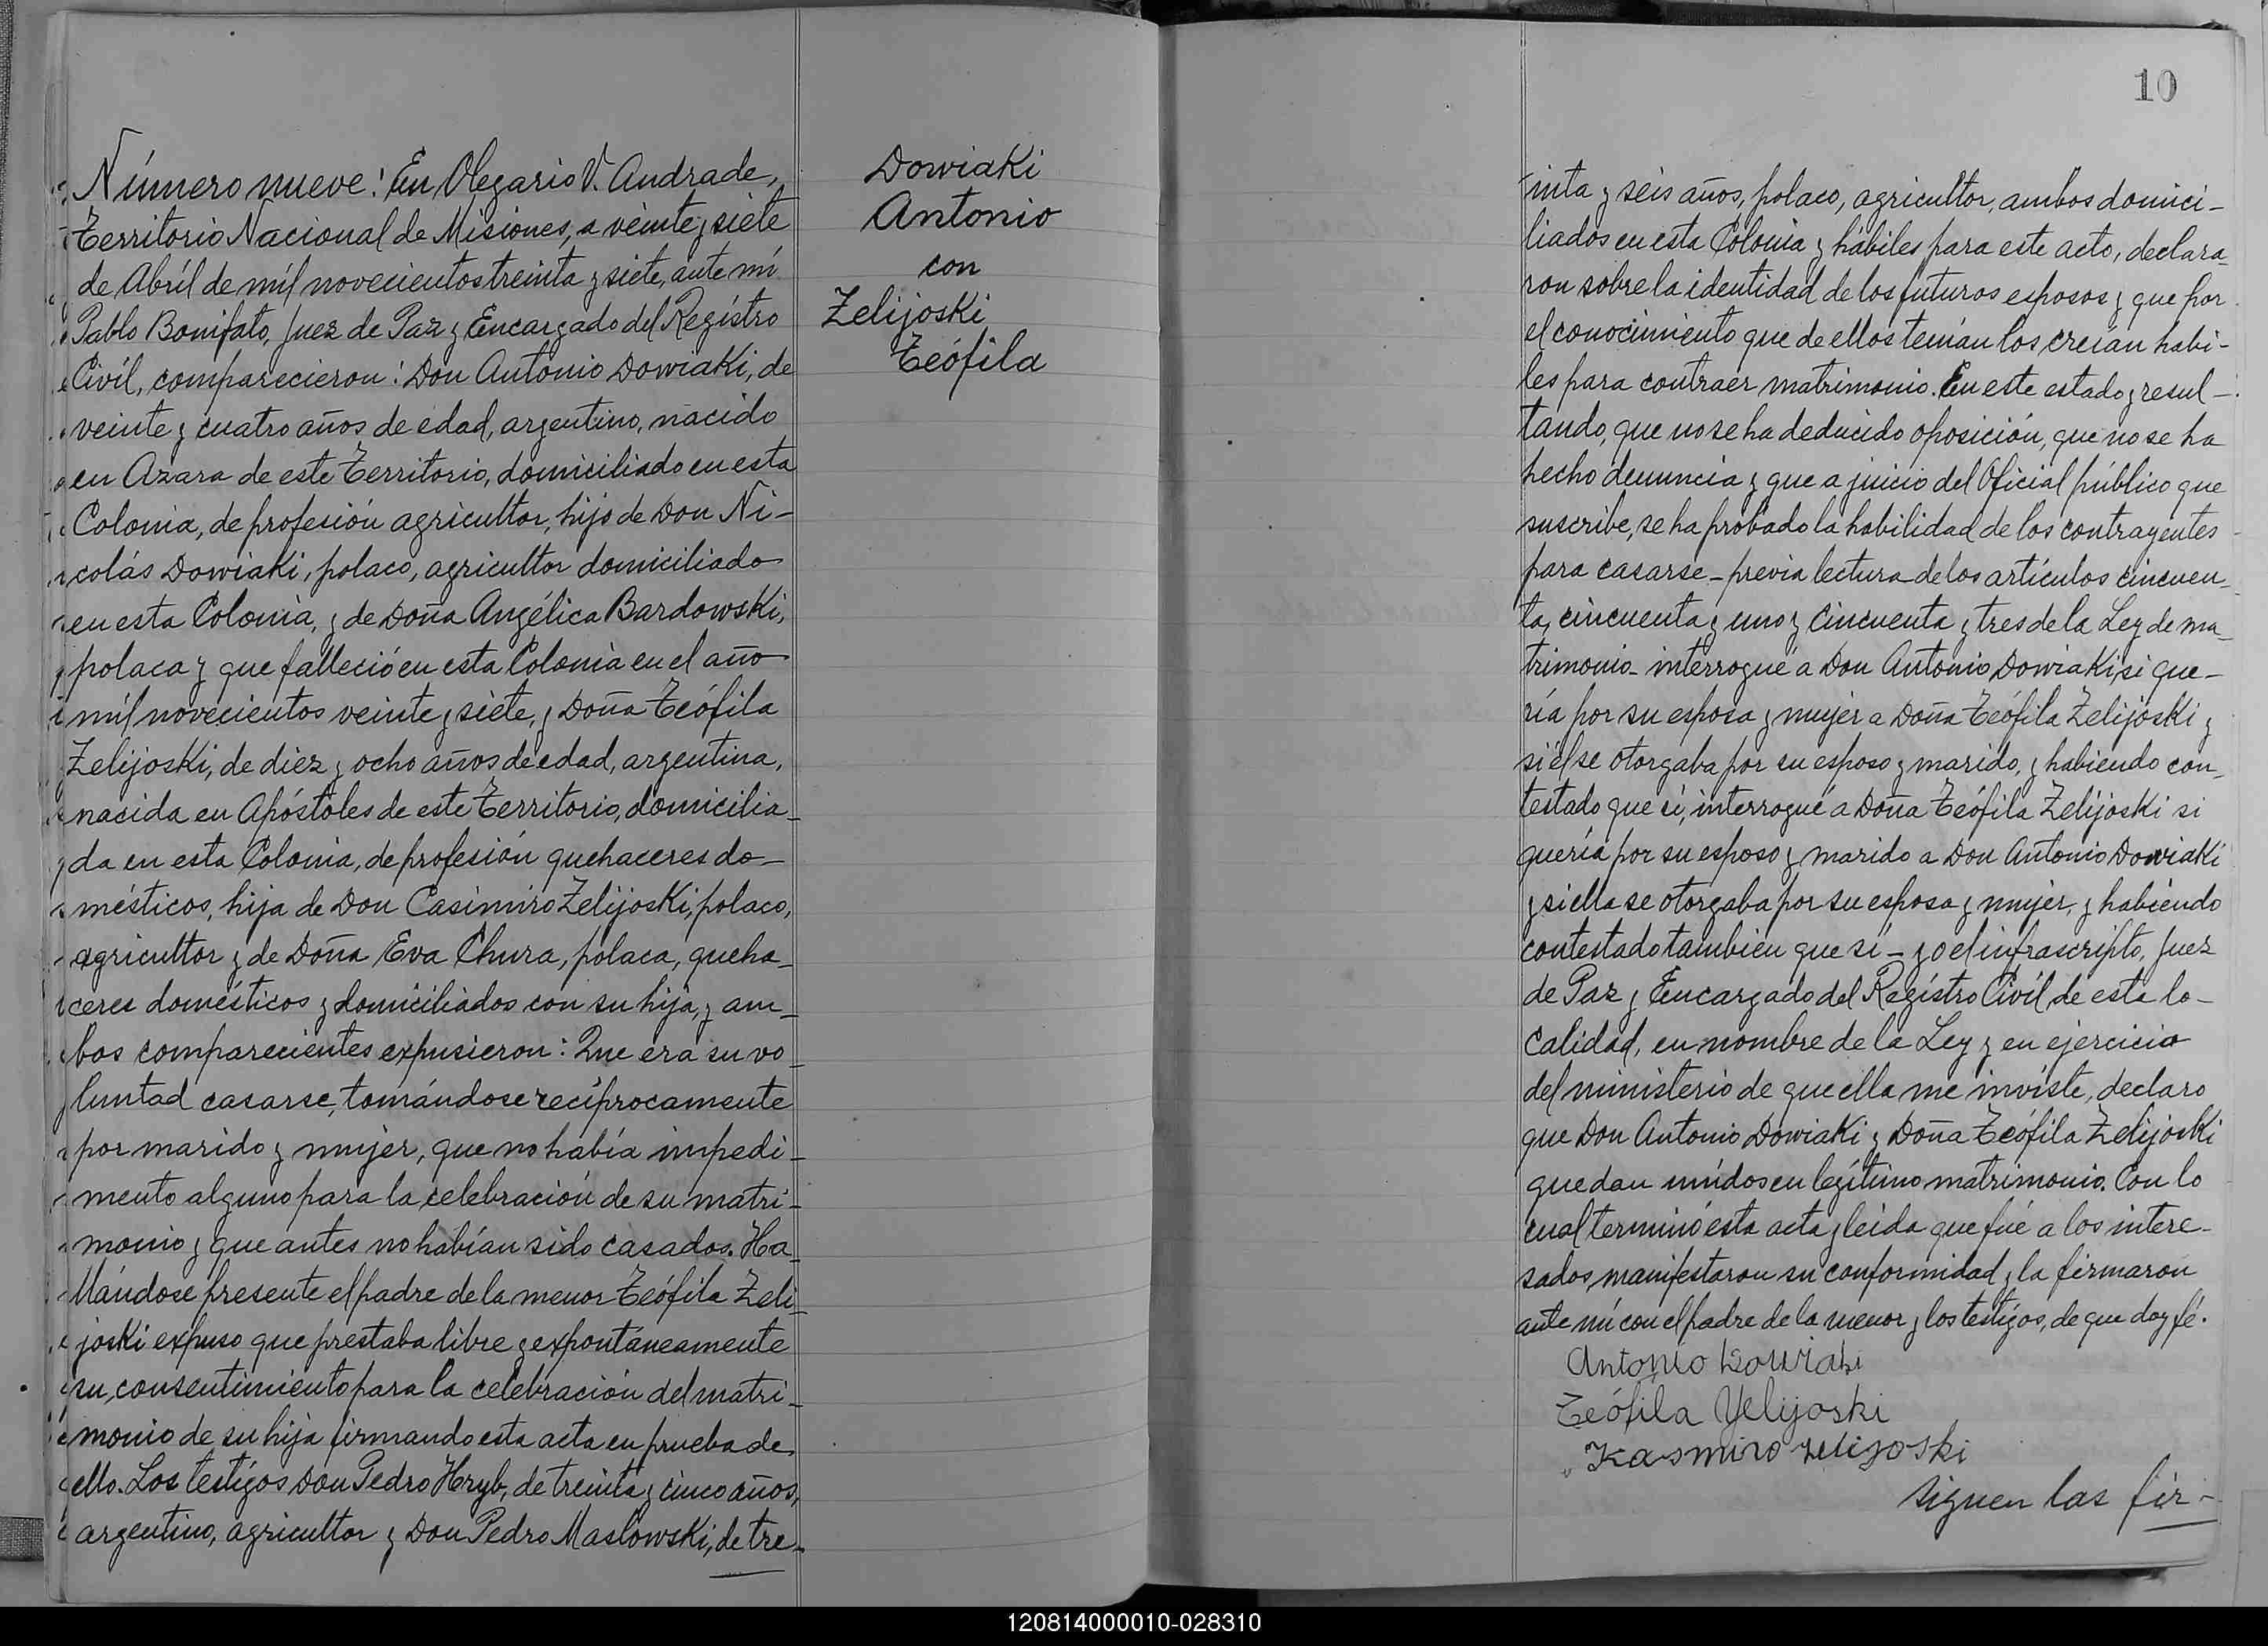 Número nueve: En Olegario V. Andrade,
Territorio Nacional de Misiones, a veinte y siete
de Abríl de míl novecientos treinta y siete, ante mí
Pablo Bonifato, Juez de Paz y Encargado del Regístro
Civíl, comparecieron: Don Antonio Dowiaki, de
veinte y cuatro años de edad, argentino, nacido
en Azara de este Territorio, domiciliado en esta
Colonia, de profesión agricultor, hijo de Don Ni-
colás Dowiaki, polaco, agricultor domiciliado
en esta Colonia, y de Doña Angélica Bardowski,
polaca y que falleció en esta Colonia en el año
míl novecientos veinte y siete, y Doña Teófila
Zelijoski, de diez y ocho años de edad, argentina,
nacida en Apóstoles de este Territorio, domicilia-
da en esta Colonia, de profesión quehaceres do-
mésticos, hija de Don Casimiro Zelijoski, polaco,
agricultor y de Doña Eva Chura, polaca, queha-
ceres domésticos y domiciliados con su hija, y am-
bos comparecientes expusieron: Que era su vo-
luntad casarse, tomándose recíprocamente
por marido y mujer, que no había impedi-
mento alguno para la celebración de su matri-
monio y que antes no habían sido casados. Ha-
llándose presente el padre de la menor Teófila Zeli-
joski expuso que prestaba libre y expontáneamente
su consentimiento para la celebración del matri-
monio de su hija firmando esta acta en prueba de
ello. Los testígos Don Pedro Hryb, de treinta y cinco años,
argentino, agricultor y Don Pedro Maslowski, de tre-
Dowiaki
Antonio
con
Zelijoski
Teófila
10
inta y seis años, polaco, agricultor, ambos domici-
liados en esta Colonia y hábiles para este acto, declara-
ron sobre la identidad de los futuros esposos y que por
el conocimiento que de ellos tenían los creían habi-
les para contraer matrimonio. En este estado y resul-
tando, que no se ha deducido oposición, que no se ha
hecho denuncia y que a juicio del Oficial público que
suscribe, se ha probado la habilidad de los contrayentes
para casarse - previa lectura de los artículos cincuen-
ta, cincuenta y uno y cincuenta y tres de la Ley de ma-
trimonio - interrogué a Don Antonio Dowiaki, si que-
ría por su esposa y mujer a Doña Teófila Zelijoski y
si él se otorgaba por su esposo y marido, y habiendo con-
testado que sí, interrogué a Doña Teófila Zelijoski si
quería por su esposo y marido a Don Antonio Dowiaki
y si ella se otorgaba por su esposa y mujer, y habiendo
contestado tambien que sí - yo el infrascripto, Juez
de Paz y Encargado del Regístro Civíl de esta lo-
calidad, en nombre de la Ley y en ejercicio
del ministerio de que ella me invíste, declaro
que Don Antonio Dowiaki y Doña Teófila Zelijoski
quedan unídos en legítimo matrimonio. Con lo
cual terminó esta acta y leída que fué a los intere-
sados, manifestaron su conformidad y la firmaron
ante mí con el padre de la menor y los testígos, de que doy fé.
Antonio Dowiaki
Teófila Yelijoski
Kasmiro zelijoski
siguen las fir-
120814000010-028310